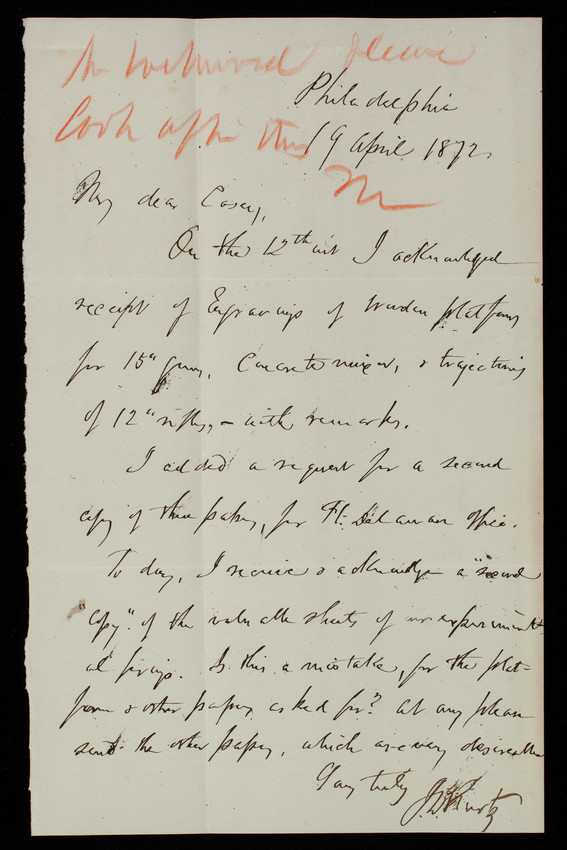 please
look after this
Philadelphia
19 April 1872.
My dear Casey,
On the 12th inst I acknowledged
receipt of Engravings of wooden platforms
for 15" guns, Concrete mixer, & trajectories
of 12" rifles, - with remarks.
I added a request for a second
copy of these papers, for Ft. Delaware office.
To day, I receive & acknowledge a "second
"copy" of the valuable sheets of our experiment-
al firings. Is this a mistake, for the plat-
form & other papers asked for? At any please
send the other papers, which are very desirable
Yours truly
J.D. Kurtz